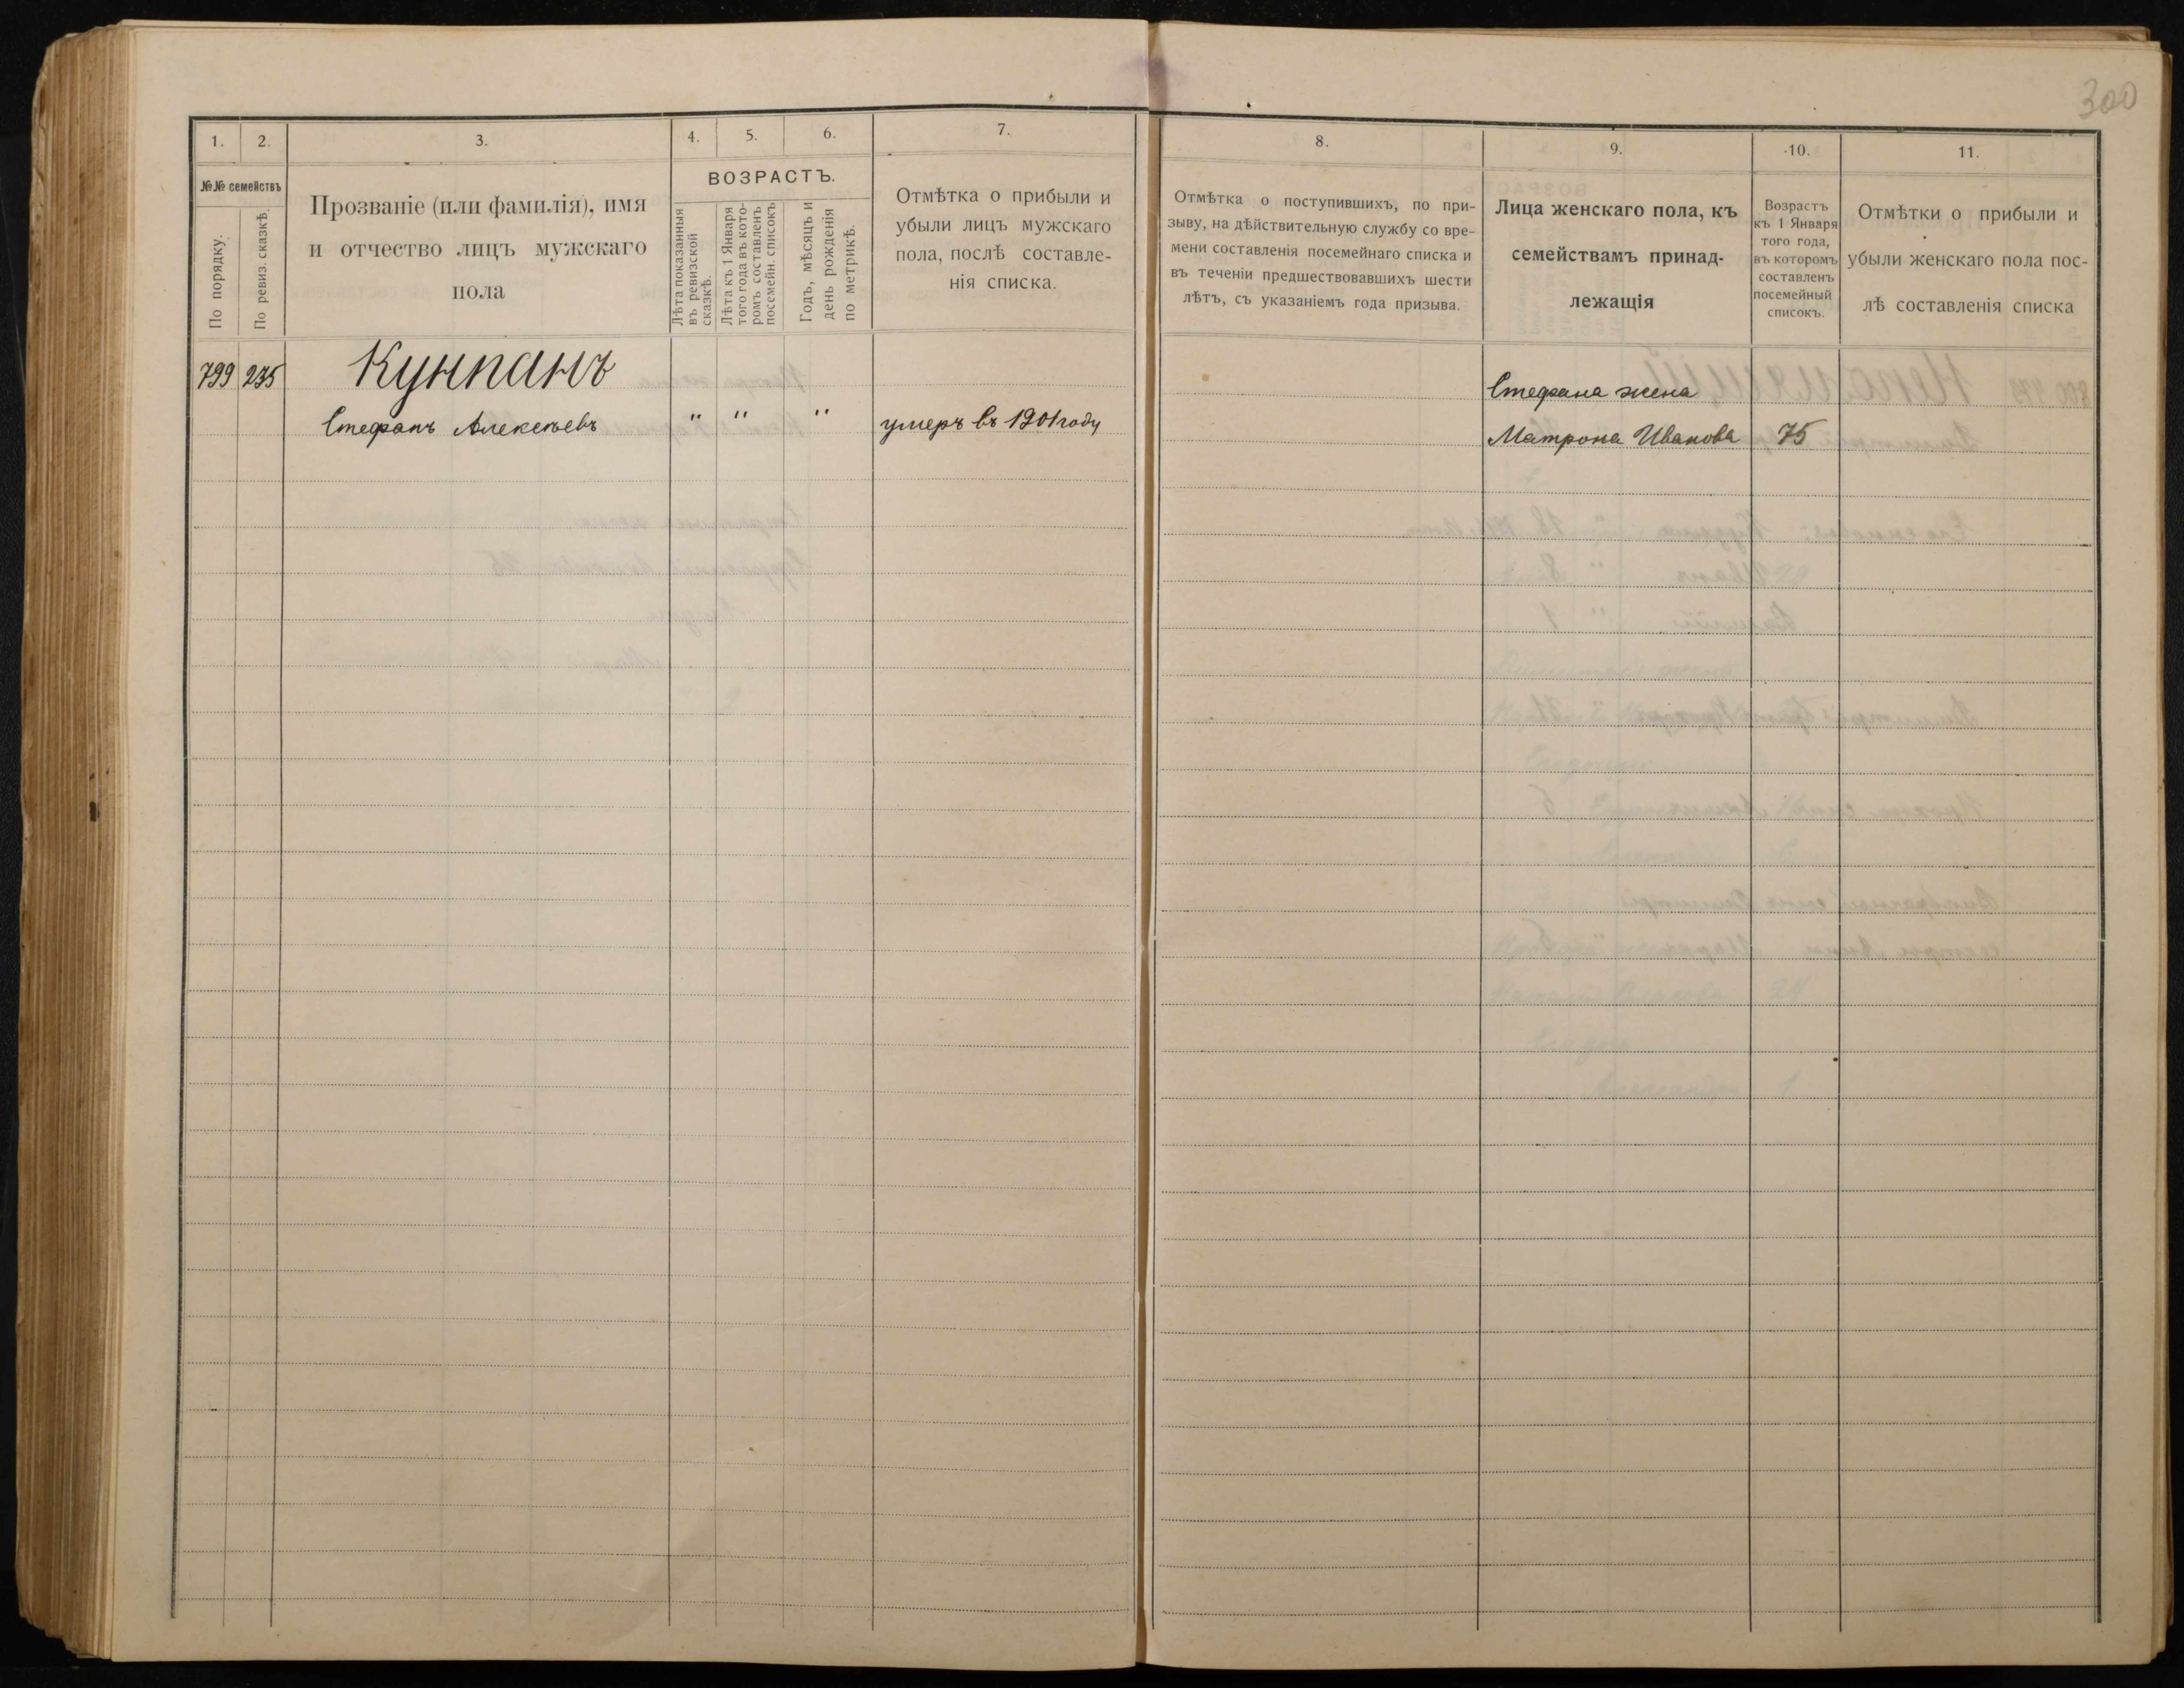 300
1. 2. 3. 4. 5. 6. 7. 8. 9. 10. 11.
№№ семействъ
По порядку.
По ревиз. сказкѣ.
Прозваніе (или фамилія), имя
и отчество лицъ мужскаго
пола
ВОЗРАСТЪ.
Лѣта показанныя
въ ревизской
сказкѣ.
Лѣта къ 1 Января
того года въ кото-
ромъ составленъ
посемейн. списокъ
Годъ, мѣсяцъ и
день рожденія
по метрикѣ.
Отмѣтка о прибыли и
убыли лицъ мужскаго
пола, послѣ составле-
нія списка.
Отмѣтка о поступившихъ, по при-
зыву, на дѣйствительную службу со вре-
мени составленія посемейнаго списка и
въ теченіи предшествовавшихъ шести
лѣтъ, съ указаніемъ года призыва.
Лица женскаго пола, къ
семействамъ принад-
лежащія
Возрастъ
къ 1 Января
того года,
въ которомъ
составленъ
посемейный
списокъ.
Отмѣтки о прибыли и
убыли женскаго пола пос-
лѣ составленія списка
799 235 Куннанъ
Стефана жена
Стефанъ Алексѣевъ " " " умеръ въ 1901 году
Матрона Иванова 75